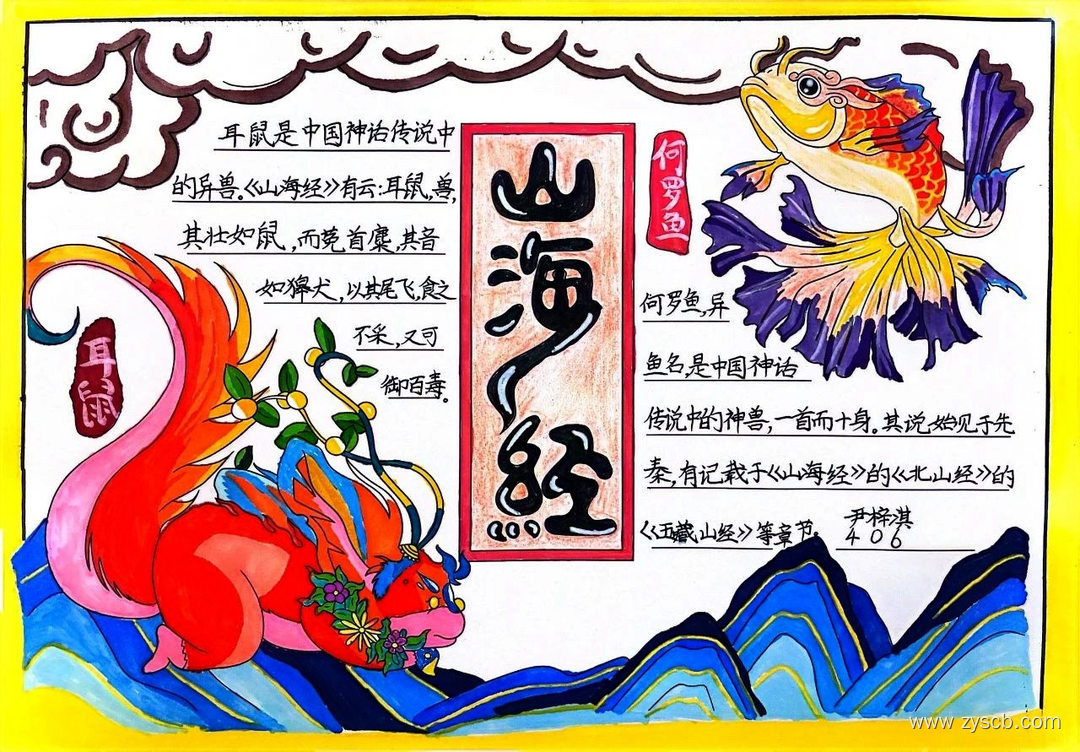 耳鼠是中国神话传说中
的异兽。《山海经》有云:耳鼠,兽,
其壮如鼠,而菟首麋,其音
如獆犬,以其尾飞,食之
不采,又可
御百毒。
耳鼠
山海经
何罗鱼
何罗鱼,异
鱼名,是中国神话
传说中的神兽,一首而十身。其说始见于先
秦,有记载于《山海经》的《北山经》的
《五藏山经》等章节。
尹梓淇
406
www.zyscb.com